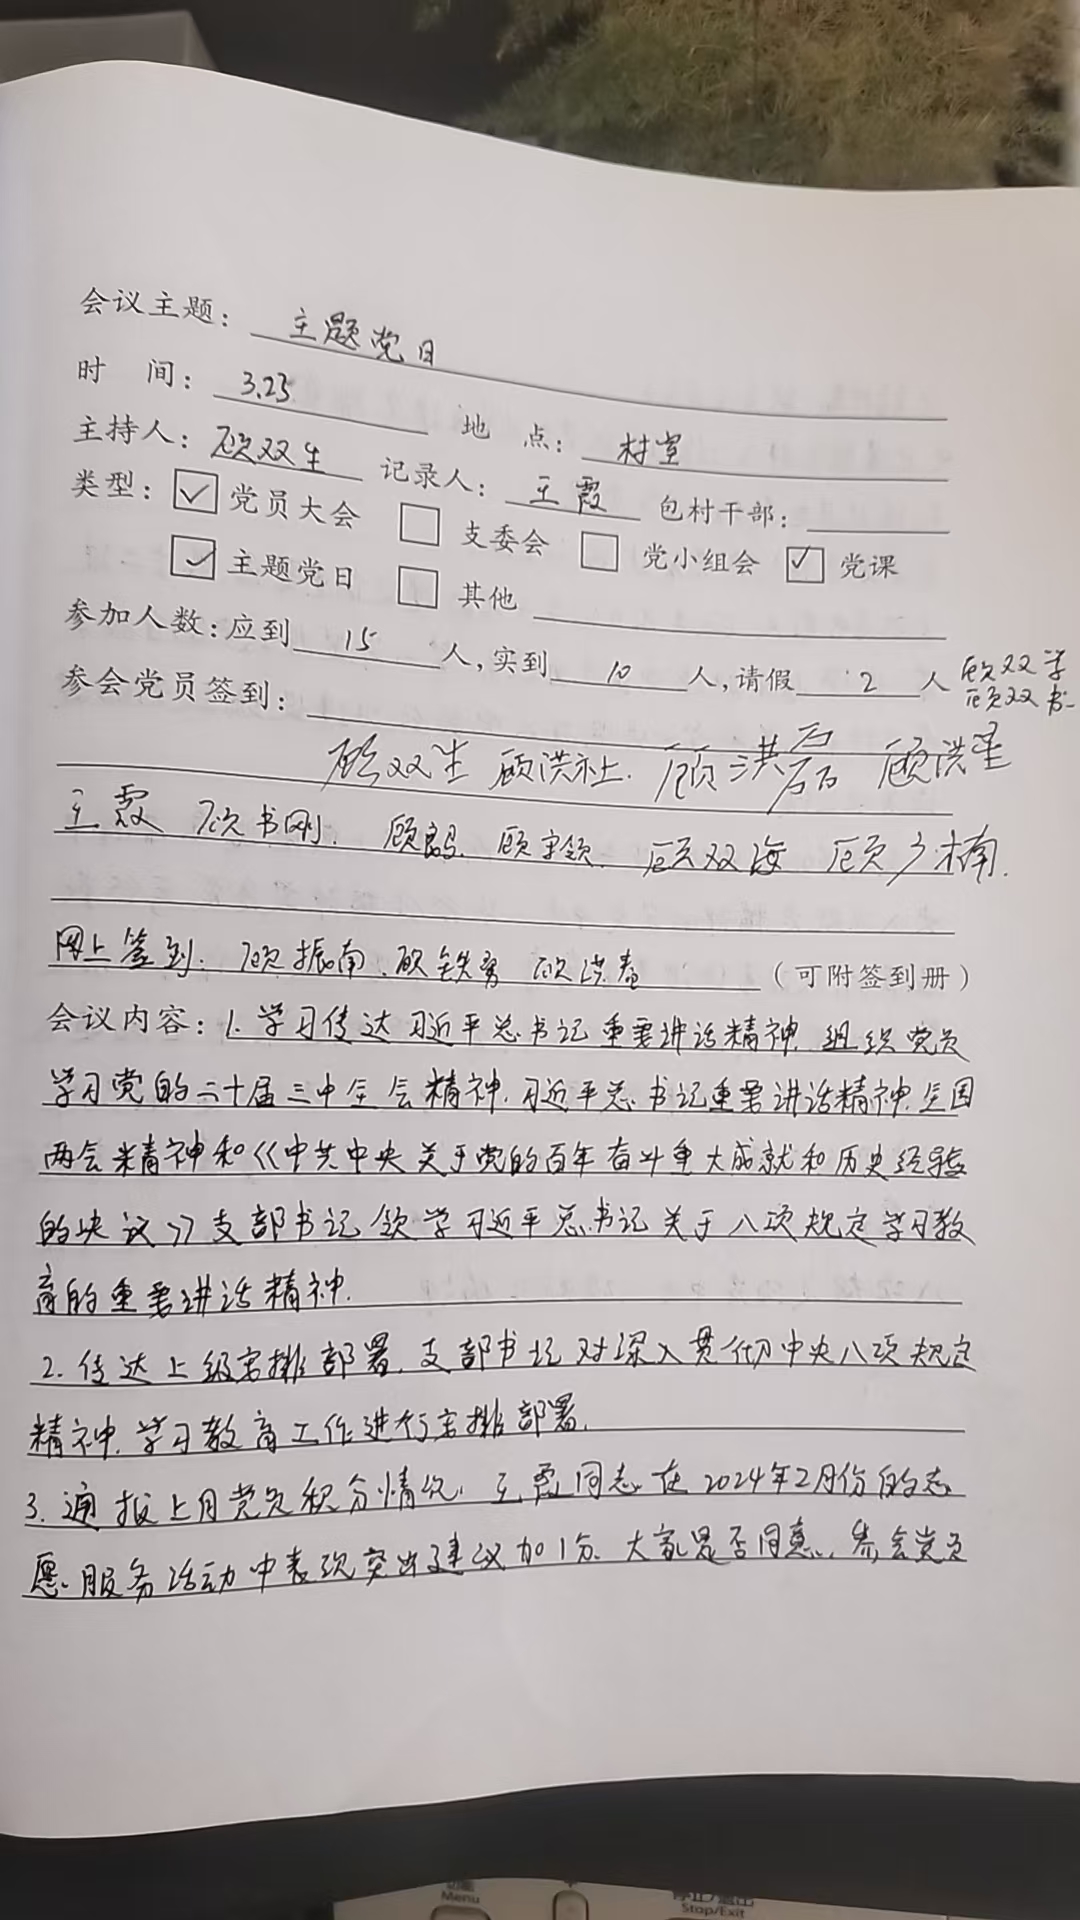 会议主题： 主题党日
时 间： 3.25 地 点： 村室
主持人： 顾双生 记录人： 王霞 包村干部：
类型： 党员大会 支委会 党小组会 党课
主题党日 其他
参加人数：应到 15 人，实到 10 人，请假 2 人 顾双学
顾双书
参会党员签到：
顾双生 顾洪社. 顾洪磊 顾洪星
王霞 顾书刚. 顾 顾宇领. 顾双海 顾广楠.
网上签到: 顾振南、顾铁勇 顾洪春 （可附签到册）
会议内容：1. 学习传达习近平总书记重要讲话精神. 组织党员
学习党的二十届三中全会精神. 习近平总书记重要讲话精神. 全国
两会精神和《中共中央关于党的百年奋斗重大成就和历史经验
的决议》支部书记领学习近平总书记关于八项规定学习教
育的重要讲话精神.
2. 传达上级安排部署. 支部书记对深入贯彻中央八项规定
精神. 学习教育工作进行安排部署.
3. 通报上月党员积分情况. 王霞同志在2024年2月份的志
愿服务活动中表现突出建议加1分. 大家是否同意. 参会党员
功能
Menu
停止/退出
Stop/Exit